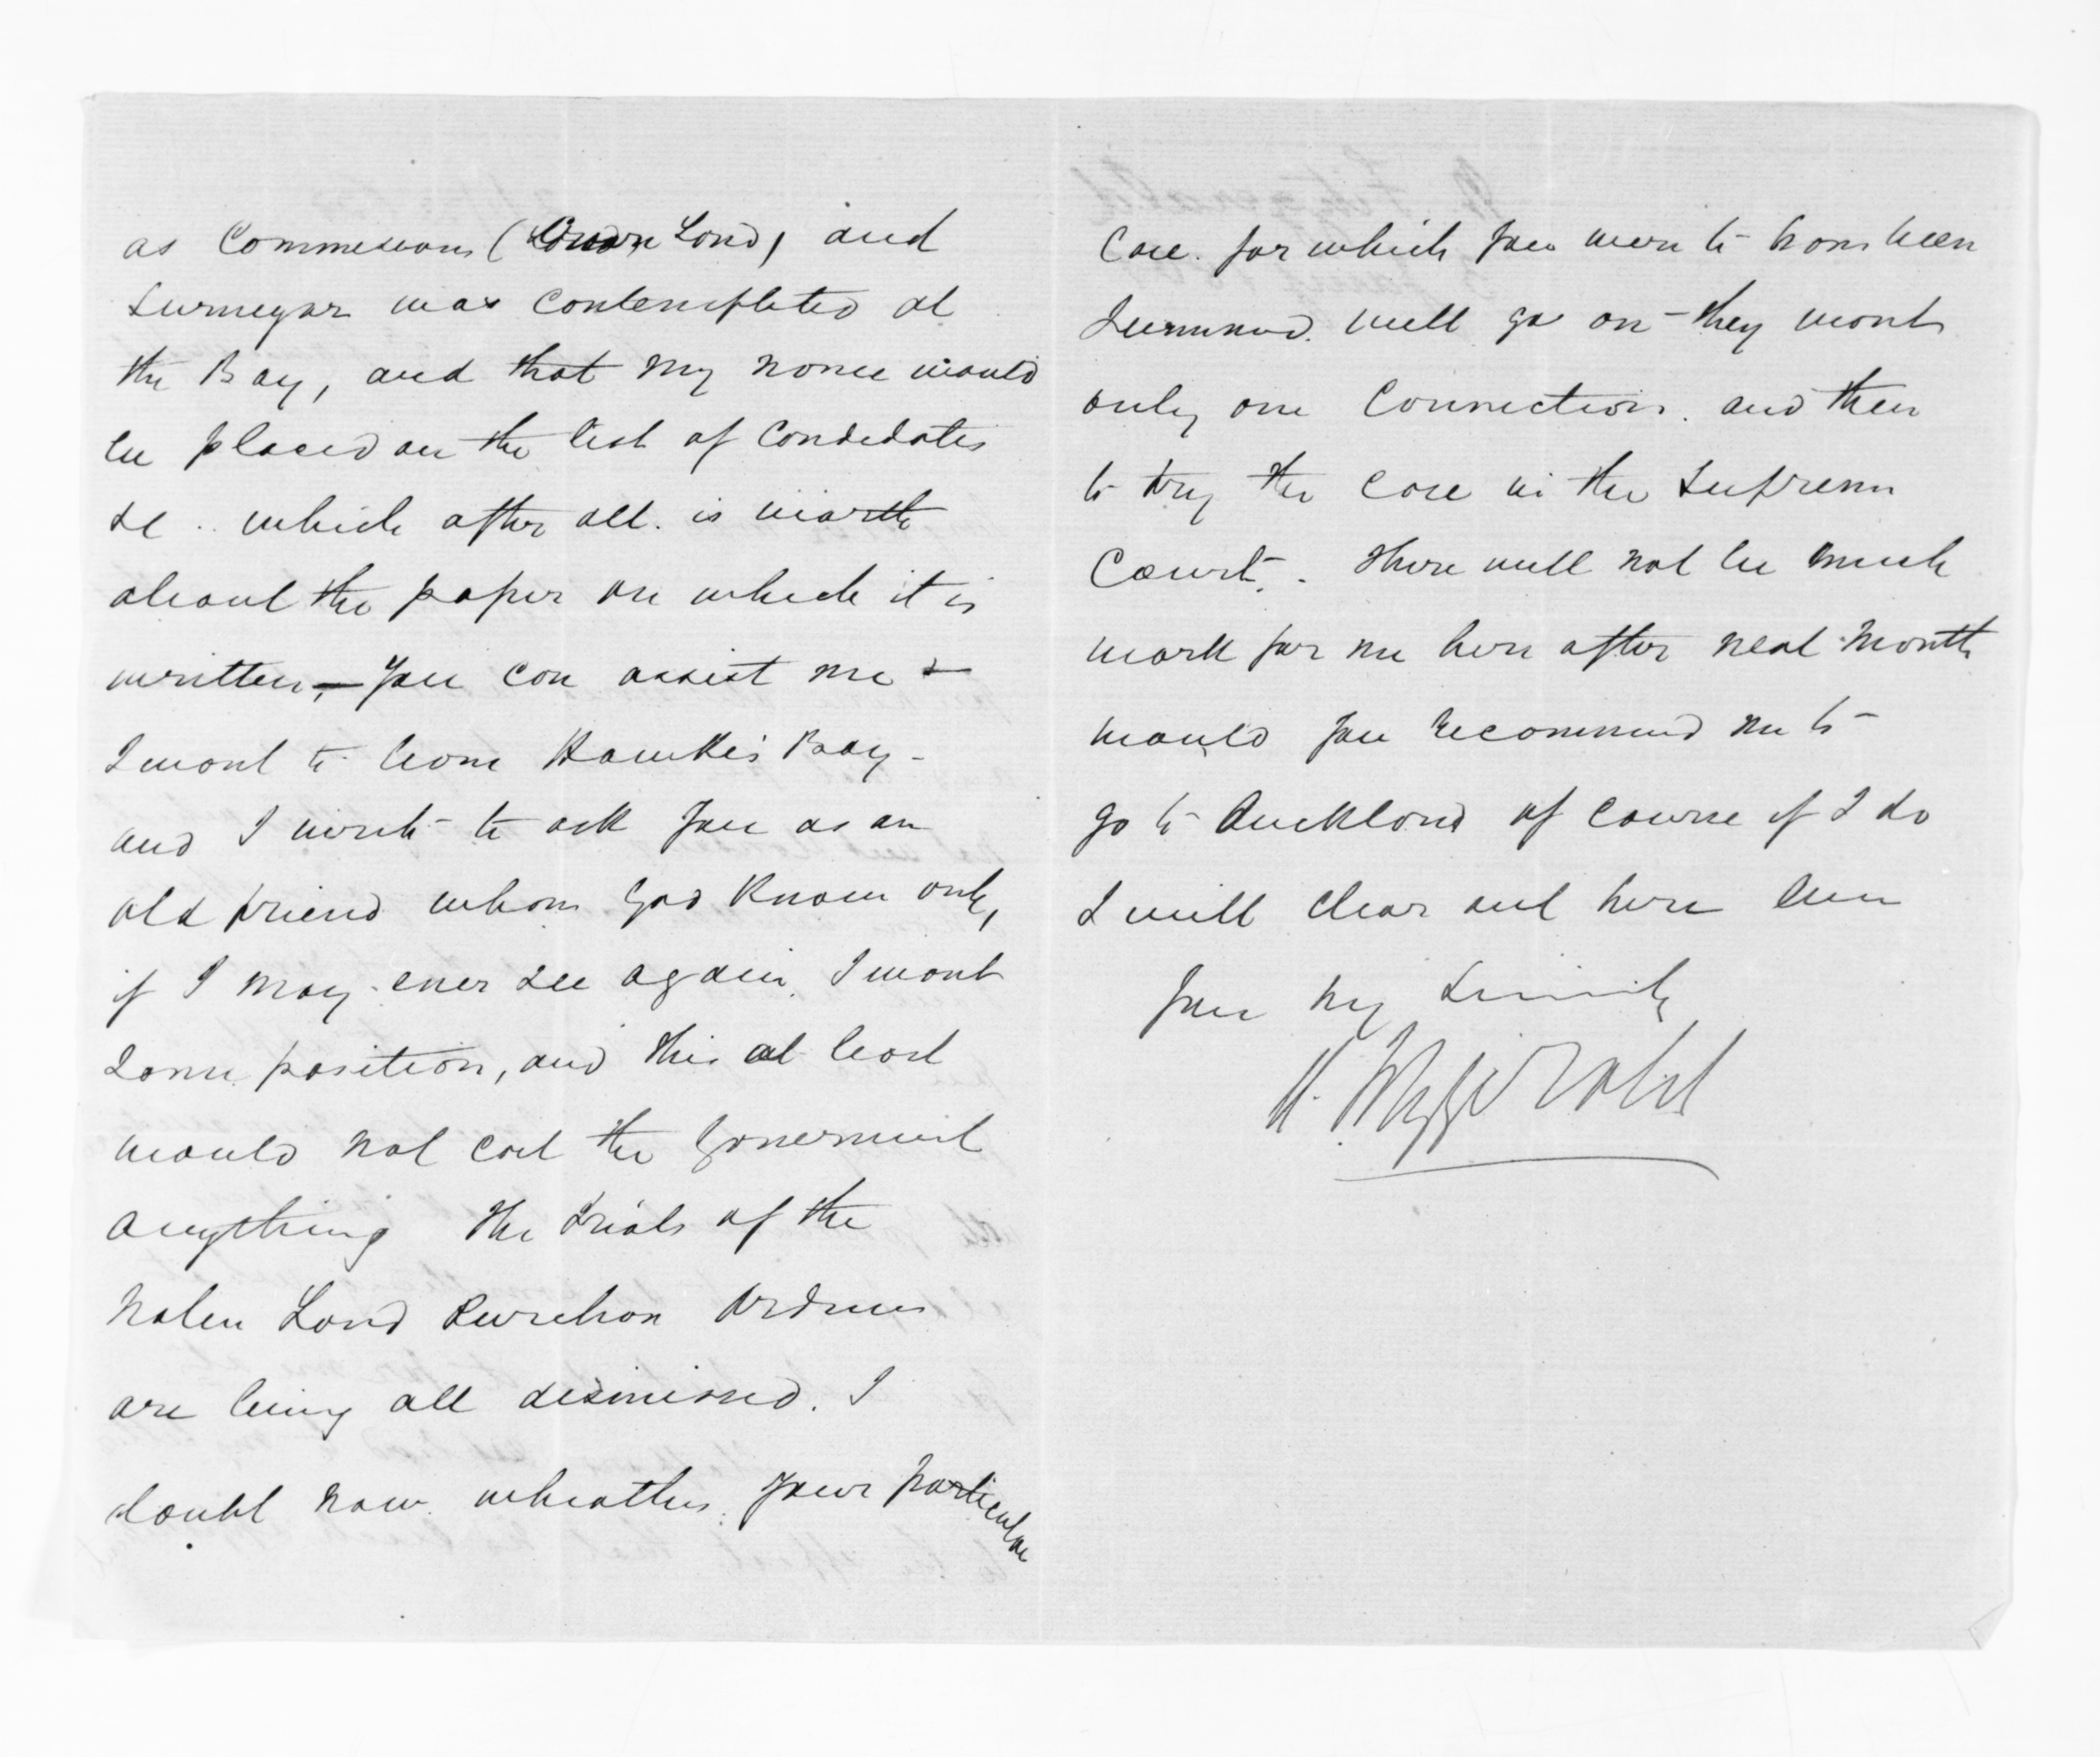 as Commissions (Crown Land) and
Surveyor was contemplated at
the Bay, and that my name would
be placed on the list of Candidates
&c .. which after all. is worth
about the paper on which it is
written, — You can assist me &
I want to leave Hawke's Bay -
and I wish to ask you as an
old friend whom God Knows only,
if I may ever see again. I want
some position, and this at least
would not cost the Government
anything The trials of the
Native Land Purchase Ordinance
are being all dismissed. I
doubt now. wheather your particular
Case. for which you were to have been
Summoned. will go on - they want
only one Connection. and then
to try the case in the Supreme
Court. - There will not be much
work for me here after next Month
would you recommend me to
go to Auckland of course if I do
I will clear out here
Your very Sincerely
Fitzgerald